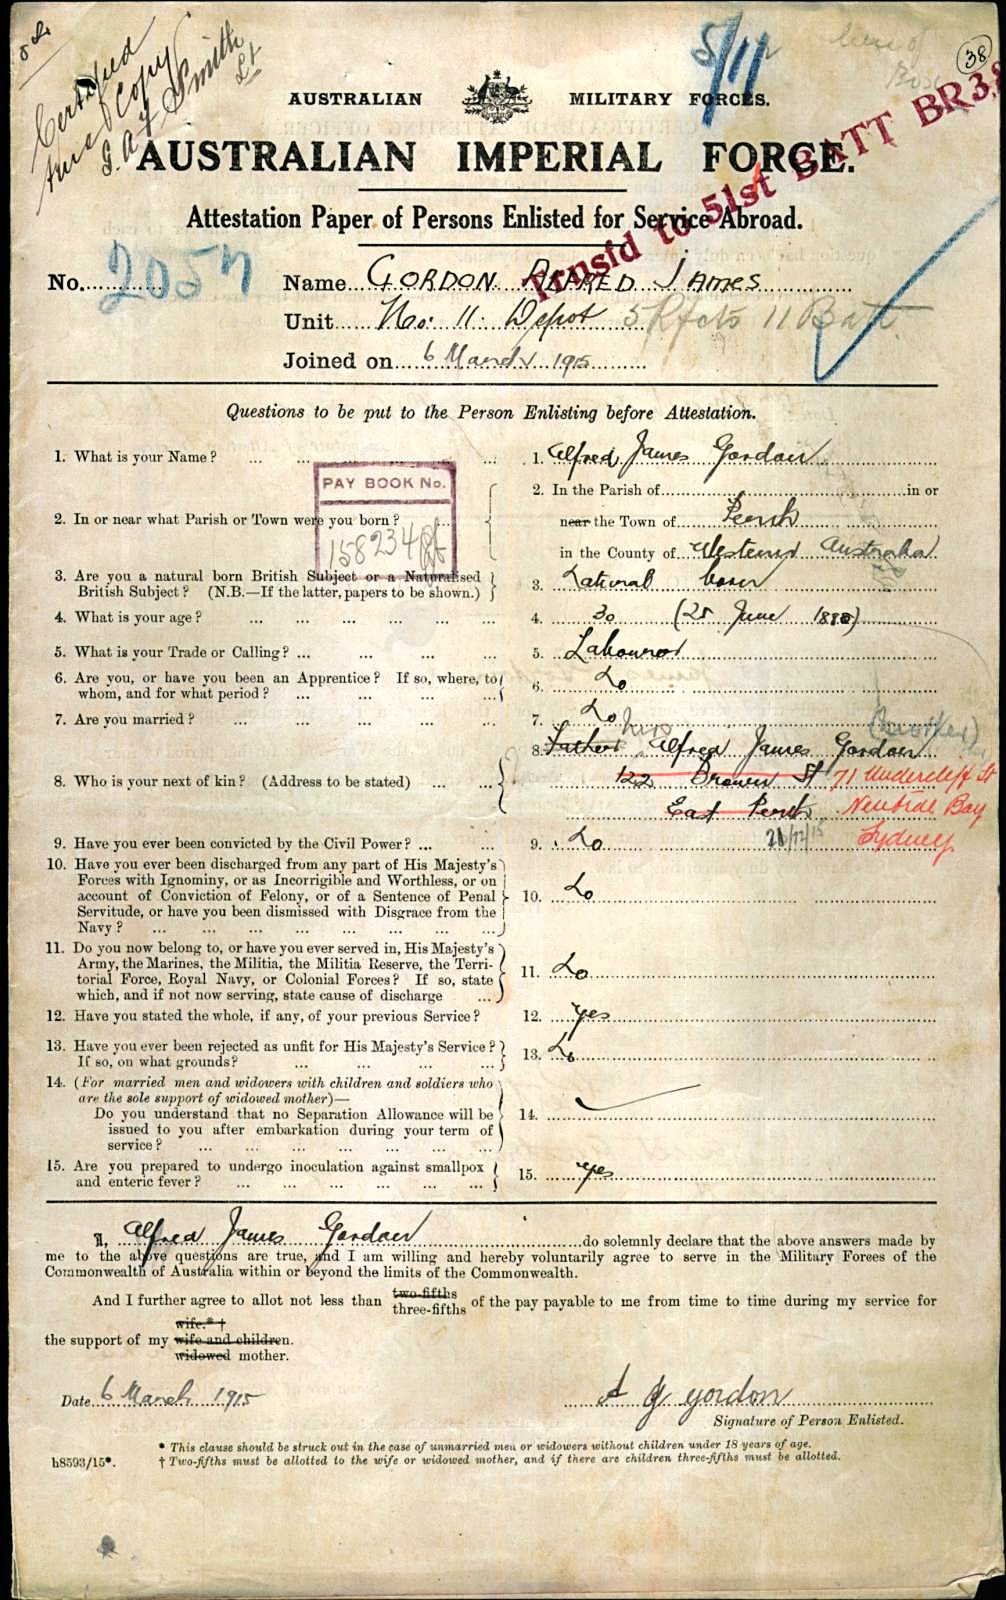 38
Certified
true Copy
G. A. Y Smith
Lt
5/11
AUSTRALIAN MILITARY FORCES.
AUSTRALIAN IMPERIAL FORCE.
Trnsfd to 51st BATT BR3,8
Attestation Paper of Persons Enlisted for Service Abroad.
No. 2057
Name GORDON ALFRED JAMES
Unit No. 11. Depot 5 Rfcts 11 Batt.
Joined on 6 March 1915
Questions to be put to the Person Enlisting before Attestation.
1. What is your Name? ... ... ... ... 1. Alfred James Gordon
PAY BOOK No.
158234
2. In or near what Parish or Town were you born? ... 2. In the Parish of in or
near the Town of Perth
in the County of Western Australia
3. Are you a natural born British Subject or a Naturalised
British Subject? (N.B.—If the latter, papers to be shown.) 3. Natural born
4. What is your age? ... ... ... ... ... 4. 30 (25 June 1885)
5. What is your Trade or Calling? ... ... ... ... 5. Labourer
6. Are you, or have you been an Apprentice? If so, where, to
whom, and for what period? ... ... ... ... 6. No
7. Are you married? ... ... ... ... ... 7. No
8. Who is your next of kin? (Address to be stated) ... ... 8. Father Mrs Alfred James Gordon (mother)
122 Brown St 71 Undercliff St
East Perth Neutral Bay
Sydney
21/12/15
9. Have you ever been convicted by the Civil Power? ... ... 9. No
10. Have you ever been discharged from any part of His Majesty's
Forces with Ignominy, or as Incorrigible and Worthless, or on
account of Conviction of Felony, or of a Sentence of Penal
Servitude, or have you been dismissed with Disgrace from the
Navy? ... ... ... ... ... ... ... 10. No
11. Do you now belong to, or have you ever served in, His Majesty's
Army, the Marines, the Militia, the Militia Reserve, the Terri-
torial Force, Royal Navy, or Colonial Forces? If so, state
which, and if not now serving, state cause of discharge ... 11. No
12. Have you stated the whole, if any, of your previous Service? 12. Yes
13. Have you ever been rejected as unfit for His Majesty's Service?
If so, on what grounds? ... ... ... ... 13. No
14. (For married men and widowers with children and soldiers who
are the sole support of widowed mother)—
Do you understand that no Separation Allowance will be
issued to you after embarkation during your term of
service? ... ... ... ... ... ... ... 14.
15. Are you prepared to undergo inoculation against smallpox
and enteric fever? ... ... ... ... ... 15. Yes
I, Alfred James Gordon do solemnly declare that the above answers made by
me to the above questions are true, and I am willing and hereby voluntarily agree to serve in the Military Forces of the
Commonwealth of Australia within or beyond the limits of the Commonwealth.
And I further agree to allot not less than two-fifths three-fifths of the pay payable to me from time to time during my service for
wife.* †
the support of my wife and children.
widowed mother.
Date 6 March 1915
A J Gordon
Signature of Person Enlisted.
* This clause should be struck out in the case of unmarried men or widowers without children under 18 years of age.
h8593/15*. † Two-fifths must be allotted to the wife or widowed mother, and if there are children three-fifths must be allotted.